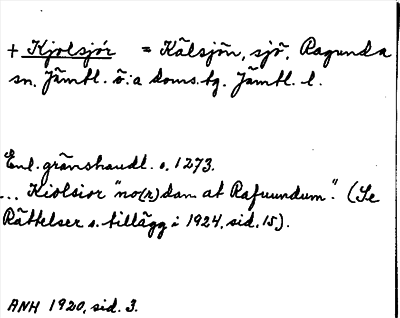 + Kjolsjór = Kälsjön, sjö, Ragunda
sn. Jämtl. ö:a doms.tg. Jämtl. l.
Enl. gränshandl. o. 1273.
... Kiolsior "no(r)dan at Rafuundum". (Se
Rättelser o. tillägg i 1924, sid. 15).
ANH 1920, sid. 3.